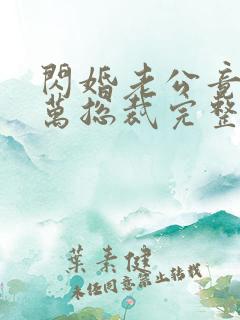 閃婚老公竟
萬總裁完整
葉素健
未經同意禁止轉載